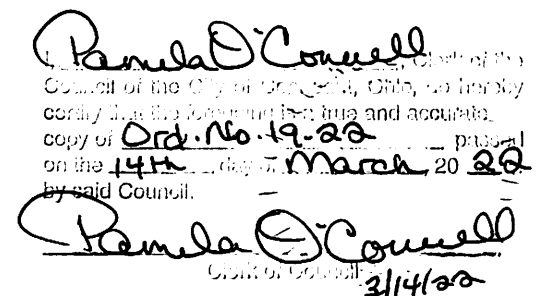 I, Pamela O'Connell, Clerk of the
Council of the City of Conneaut, Ohio, do hereby
certify that the foregoing is a true and accurate
copy of Ord. No. 19-22 passed
on the 14th day of March, 20 22
by said Council.
Pamela O'Connell
Clerk of Council
3/14/22